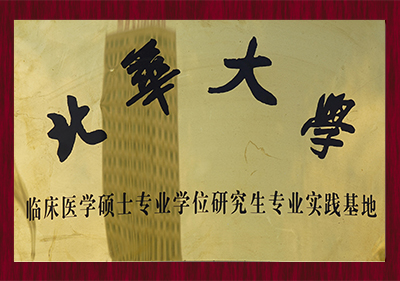 北華大学
临床医学硕士专业学位研究生专业实践基地